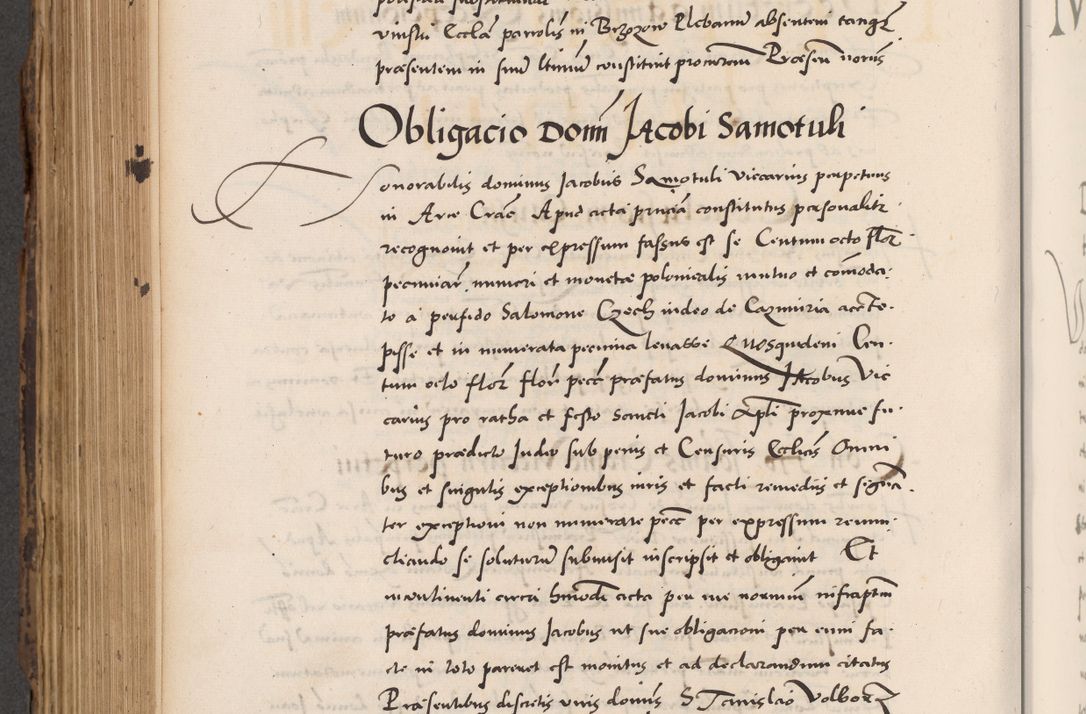 vinstu Ecclã parrolis in Brzozow Plebanũ absentem tanq̃
præsentem in suũ ltimũ constituit procuratorem Præsen. notariis
Obligacio Domĩ Jacobi Samotuli
Honorabilis dominus Jacobus Samotuli viccarius perpetuus
in Arce Crac̃ Apud acta prñcia constitutus personalitr̃
recognovit et per expressum fassus est se Centum octo flor̃
pecuniar̃ numeri et monetæ polonicalis mutuo et cõmoda-
to a perfido Salomone Czech iudeo de Cazimiria accæ-
pisse et in numerata pecunia levasse Quosquidem Cen-
tum octo flor̃ florñ pecc̃ præfatus dominus Jacobus Vic
carius pro ratha et festo Sancti Jacobi Apl̃i proxime fu-
turo prædicto Iudeo sub penis et Censuris Ecclicis Omni
bus et singulis exceptionibus iuris et facti remediis et signã-
ter exceptioni non numerate pecc̃ per expressum renun-
ciando se soluturũ submisit inscripsit et obligavit Et
incontinenti circi hmõdi acta per me notarium infrãptm
præfatus dominus Jacobus ut sue obligacioni per eum fa-
cte in toto pareret est monitus et ad declarandum citatus
Præsentibus discretis viris dominis Stanislao Volborz